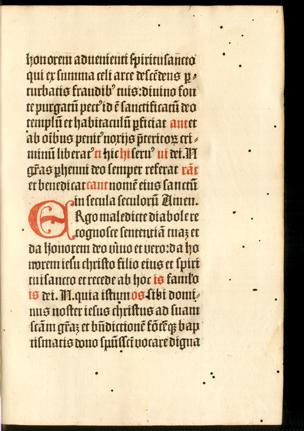 honorem advenienti spiritui sancto
qui ex summa celi arce descēdens ꝑ-
turbatis fraudibꝰ suis: divino fon
te purgatū pectꝰ id ē sanctificatū deo
templū et habitaculū ꝑficiat aut et
ab oībus penitꝰ noxijs p̄teritoꝝ cri-
minū liberatꝰ ti hic hi servꝰ ui dei. N
grās phenni deo semper referat rāt
et benedicat cant nomē eius sanctū
in secula seculorū Amen.
Ergo maledicte diabole re
cognosce sententiā tuaꝫ et
da honorem deo vivo et vero: da ho
norem iesu christo filio eius et spiri
tui sancto et recede ab hoc is famlo
is dei. N. quia istum os sibi domi-
nus noster iesus christus ad suam
scām grāꝫ et bn̄dictionē fōtēqꝫ bap
tismatis dono sp̄ūssc̄i vocare digna